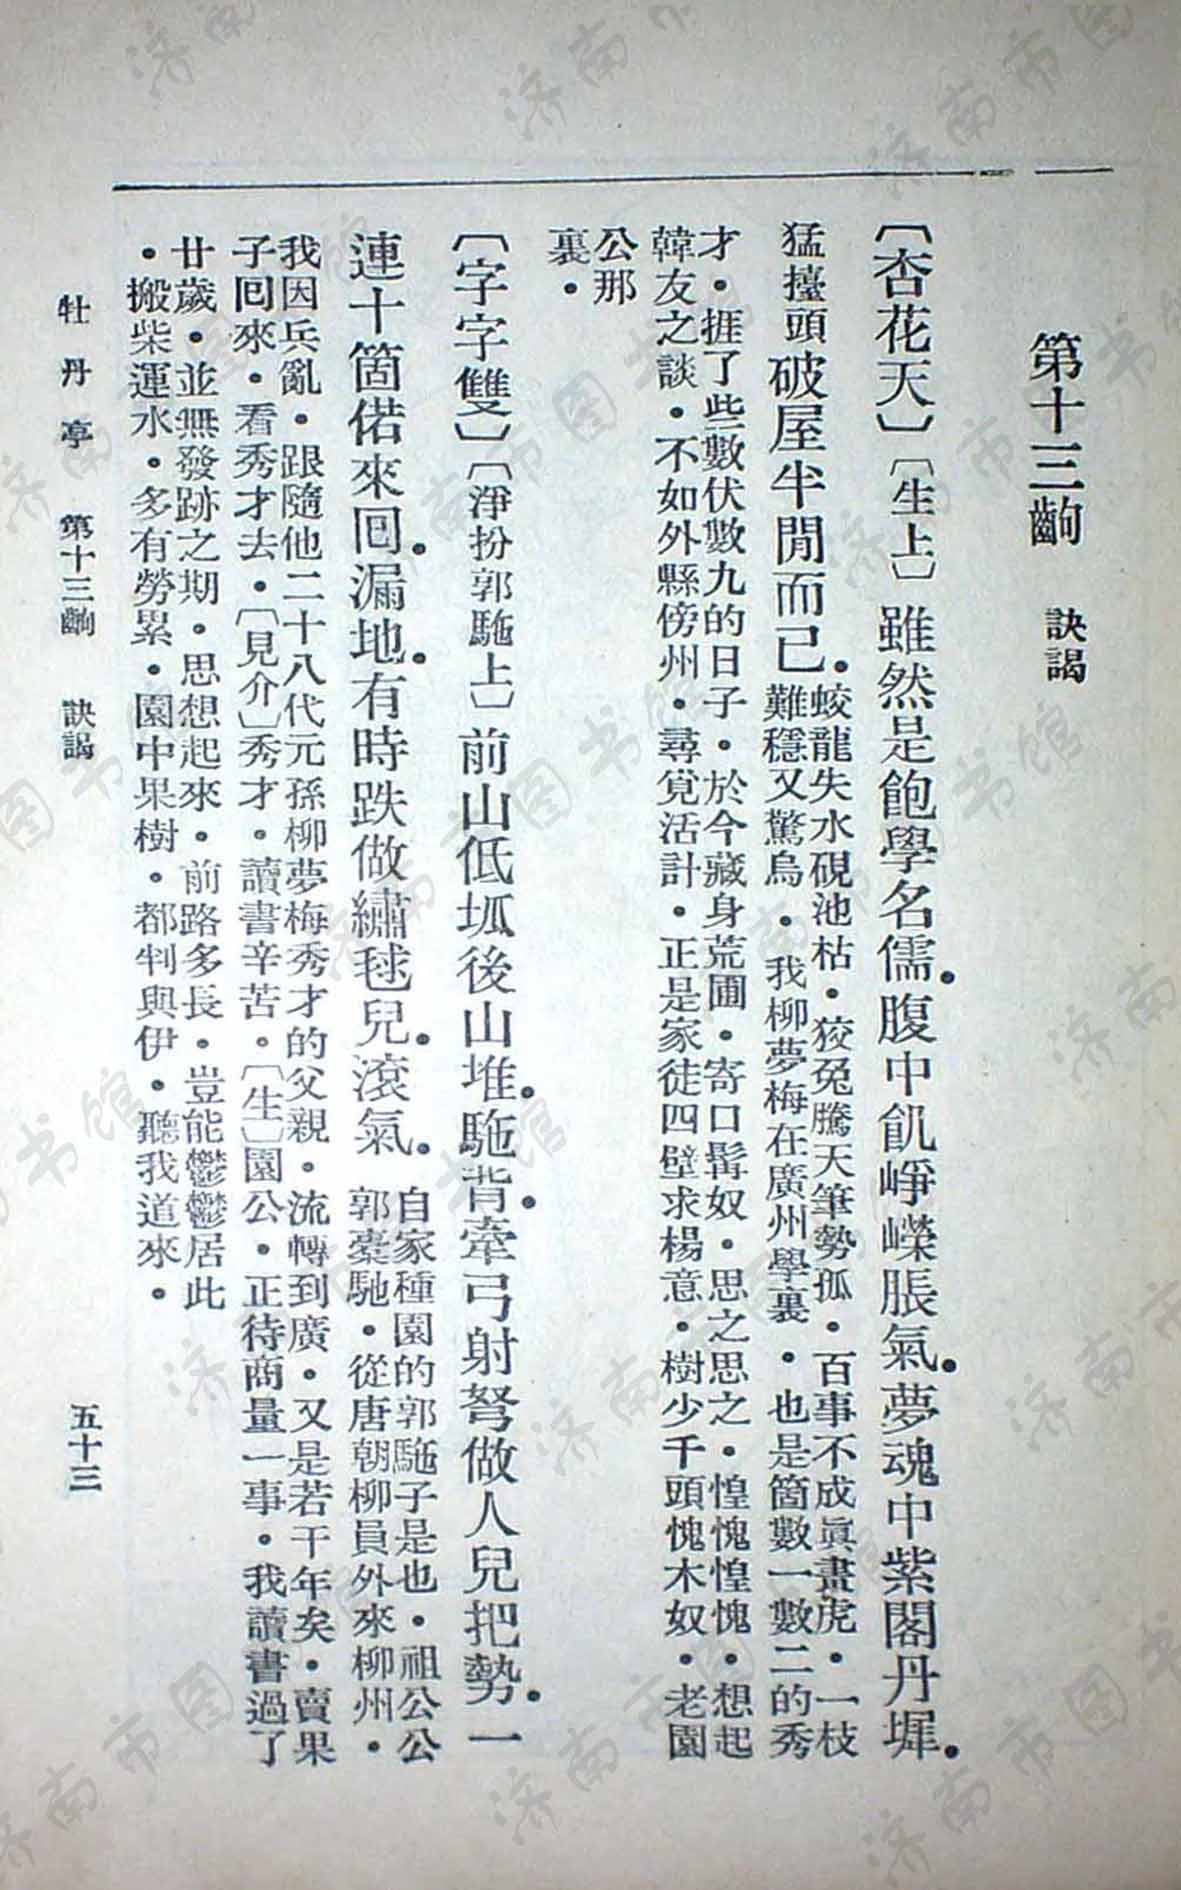 第十三齣　訣謁
〔杏花天〕〔生上〕雖然是飽學名儒．腹中飢崢嶸脹氣．夢魂中紫閣丹墀．
猛擡頭破屋半閒而已．
蛟龍失水硯池枯．狡兔騰天筆勢孤．百事不成眞畫虎．一枝
難穩又驚烏．我柳夢梅在廣州學裏．也是箇數一數二的秀
才．捱了些數伏數九的日子．於今藏身荒圃．寄口髯奴．思之思之．惶愧惶愧．想起
韓友之談．不如外縣傍州．尋覓活計．正是家徒四壁求楊意．樹少千頭愧木奴．老園
公那
裏．
〔字字雙〕〔淨扮郭駞上〕前山低坬後山堆．駞背．牽弓射弩做人兒把勢．一
連十箇偌來回．漏地．有時跌做繡毬兒．滾氣．
自家種園的郭駞子是也．祖公公
郭橐駞．從唐朝柳員外來柳州．
我因兵亂．跟隨他二十八代元孫柳夢梅秀才的父親．流轉到廣．又是若干年矣．賣果
子回來．看秀才去．〔見介〕秀才．讀書辛苦．〔生〕園公．正待商量一事．我讀書過了
廿歲．並無發跡之期．思想起來．前路多長．豈能鬱鬱居此
．搬柴運水．多有勞累．園中果樹．都判與伊．聽我道來．
牡丹亭　第十三齣　訣謁　五十三
济南市图书馆